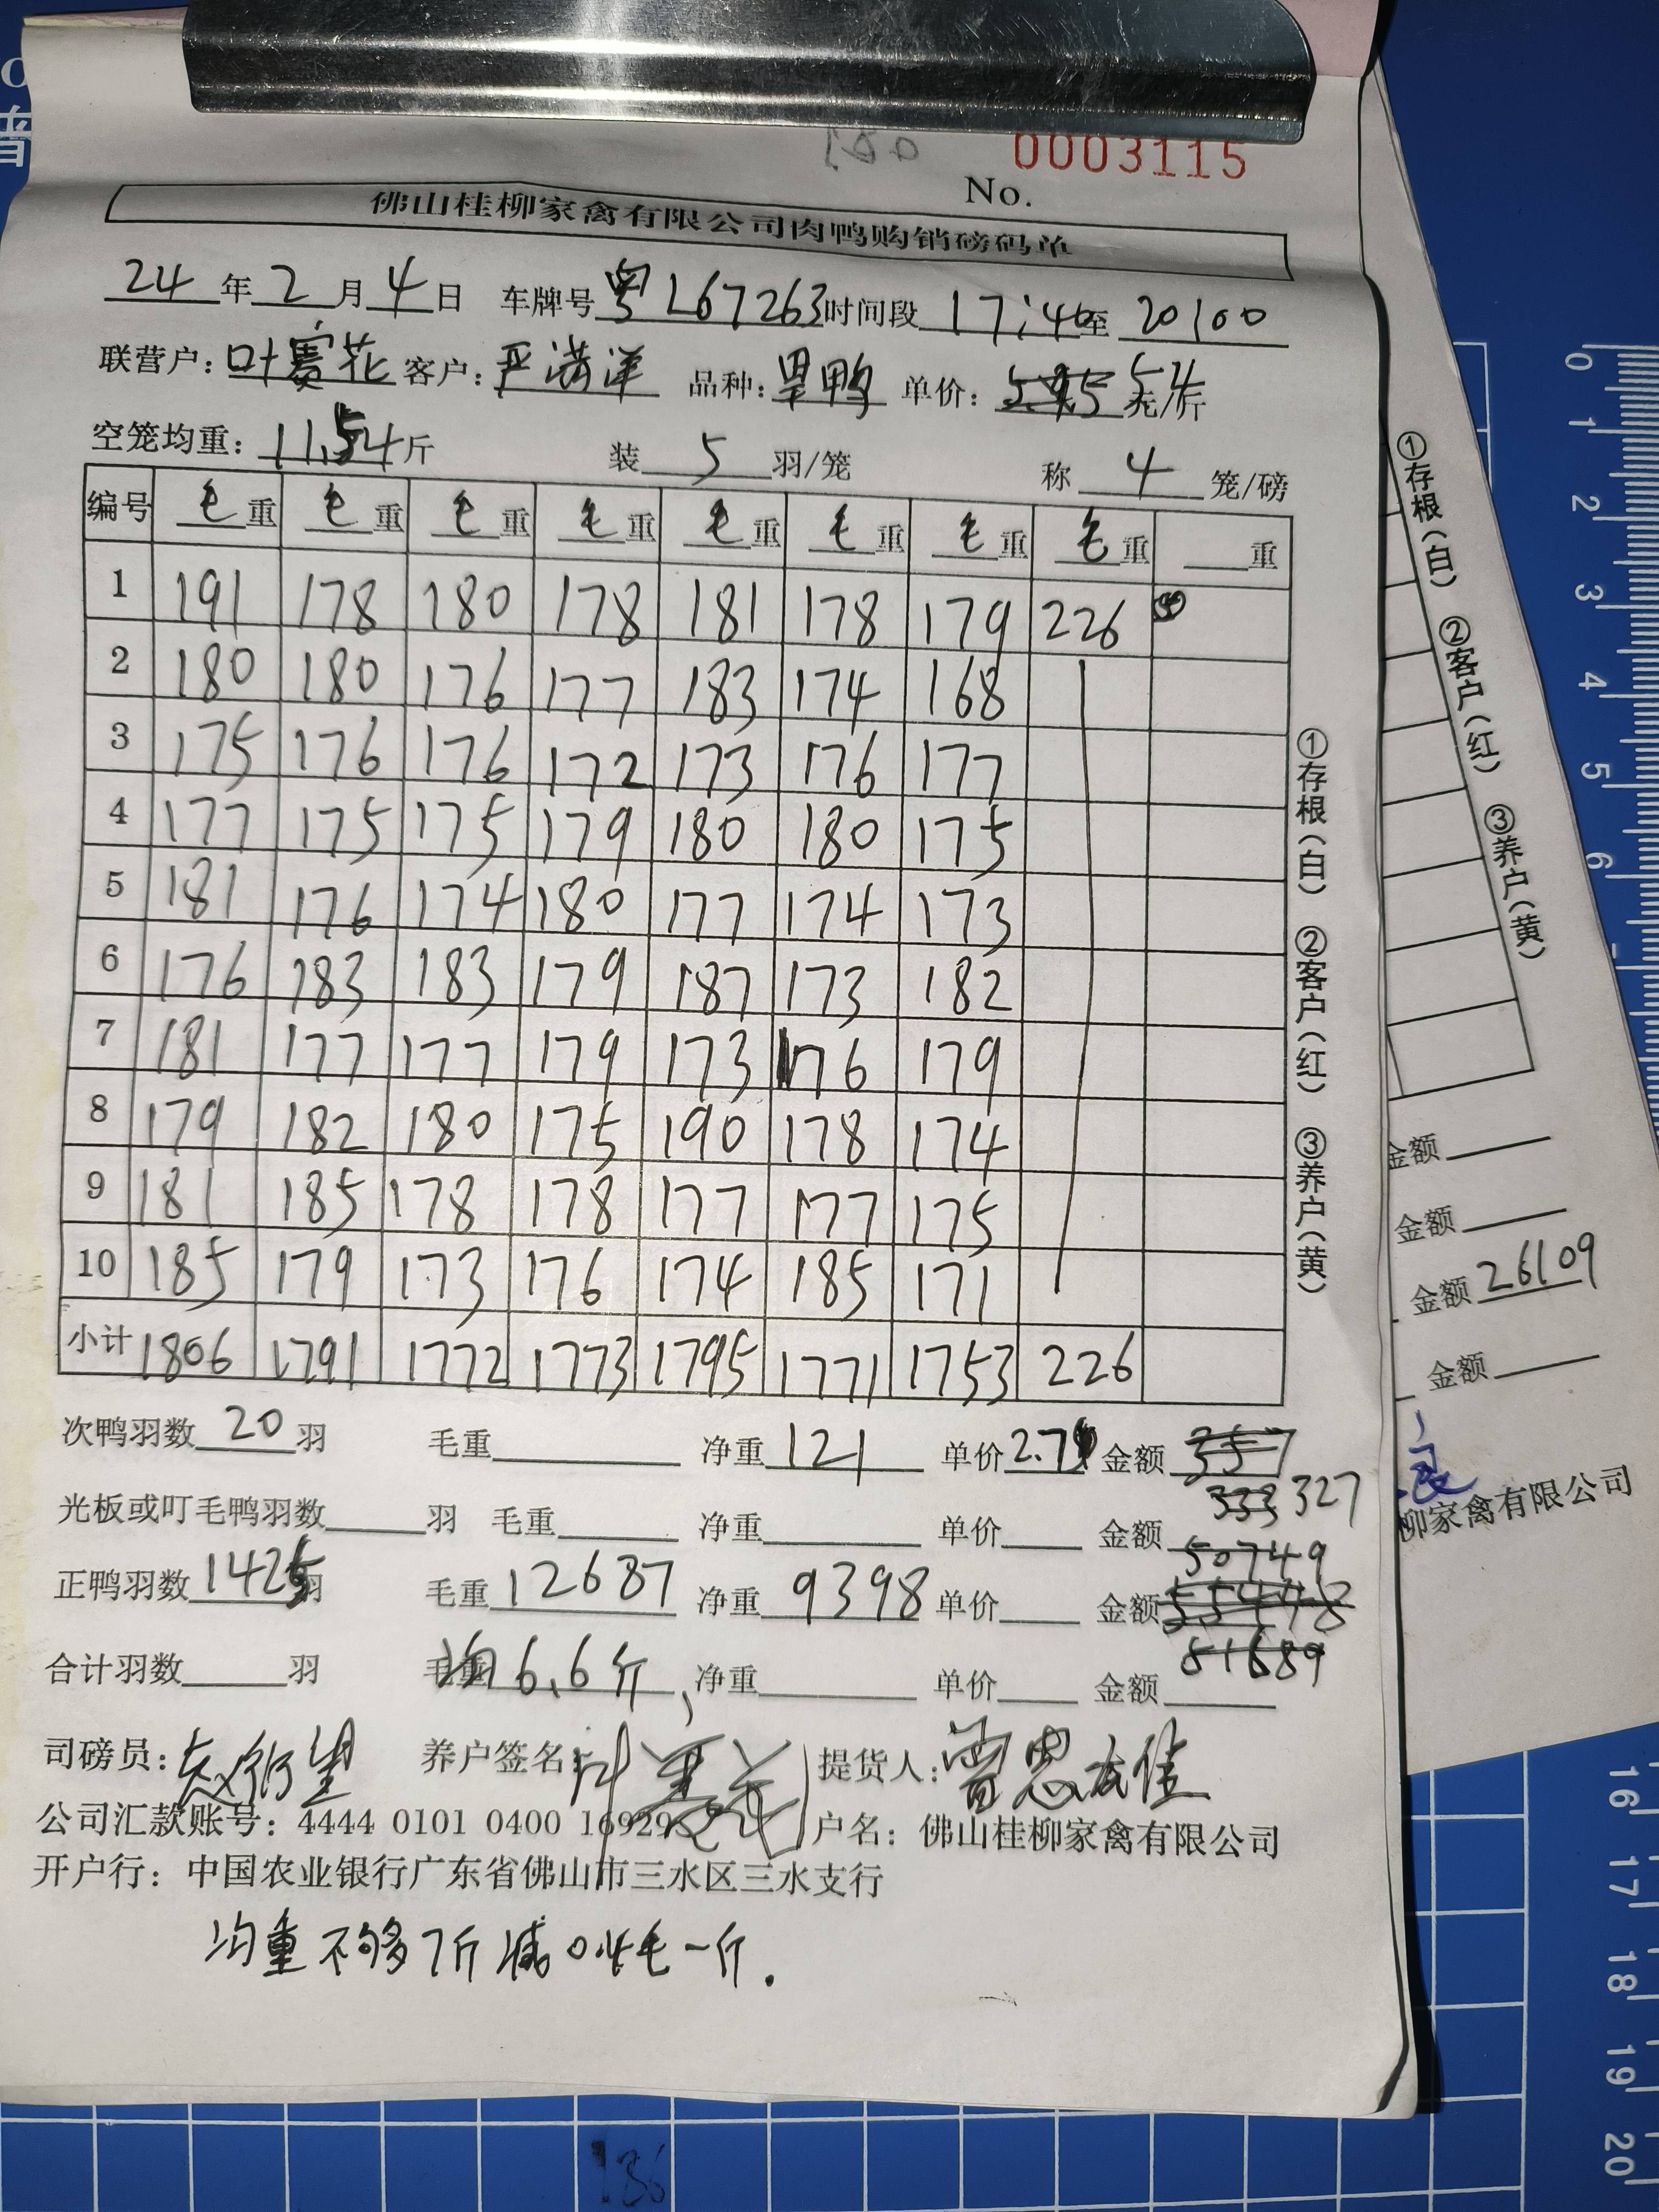 0003115
No.
佛山桂柳家禽有限公司肉鸭购销磅码单
24年2月4日 车牌号粤L67263时间段17:40至20:00
联营户:叶赛花 客户:严满洋 品种:旱鸭 单价:5.4元/斤
空笼均重:11.54斤 装5羽/笼 称4笼/磅
编号 毛重 毛重 毛重 毛重 毛重 毛重 毛重 毛重 重
1 191 178 180 178 181 178 179 226
2 180 180 176 177 183 174 168
3 175 176 176 172 173 176 177
4 177 175 175 179 180 180 175
5 181 176 174 180 177 174 173
6 176 183 183 179 187 173 182
7 181 177 177 179 173 176 179
8 179 182 180 175 190 178 174
9 181 185 178 178 177 177 175
10 185 179 173 176 174 185 171
小计 1806 1791 1772 1773 1795 1771 1753 226
次鸭羽数20羽 毛重 净重121 单价2.7 金额357
333 327
光板或叮毛鸭羽数 羽 毛重 净重 单价 金额
50749
正鸭羽数1425羽 毛重12687 净重9398 单价 金额
51689
合计羽数 羽 毛重 均6.6斤 净重 单价 金额
司磅员: 养户签名:叶赛花 提货人:
公司汇款账号:4444 0101 0400 16929 户名:佛山桂柳家禽有限公司
开户行:中国农业银行广东省佛山市三水区三水支行
均重不够7斤减 毛一斤.
①存根(白) ②客户(红) ③养户(黄)
①存根(白) ②客户(红) ③养户(黄)
金额
金额
金额26109
金额
柳家禽有限公司
0
1
2
3
4
5
6
16
17
18
19
20
136